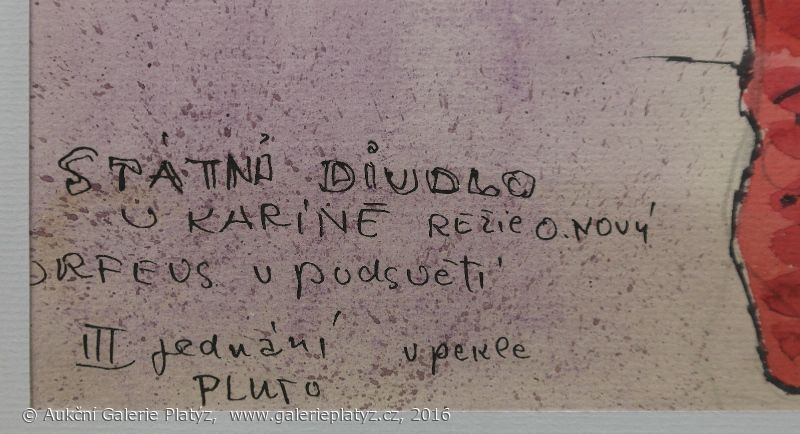 STÁTNÍ DIVDLO
V KARÍNĚ REŽIE O. NOVÝ
ORFEUS V podsvětí
III jednání v pekle
PLUTO
© Aukční Galerie Platýz, www.galerieplatyz.cz, 2016